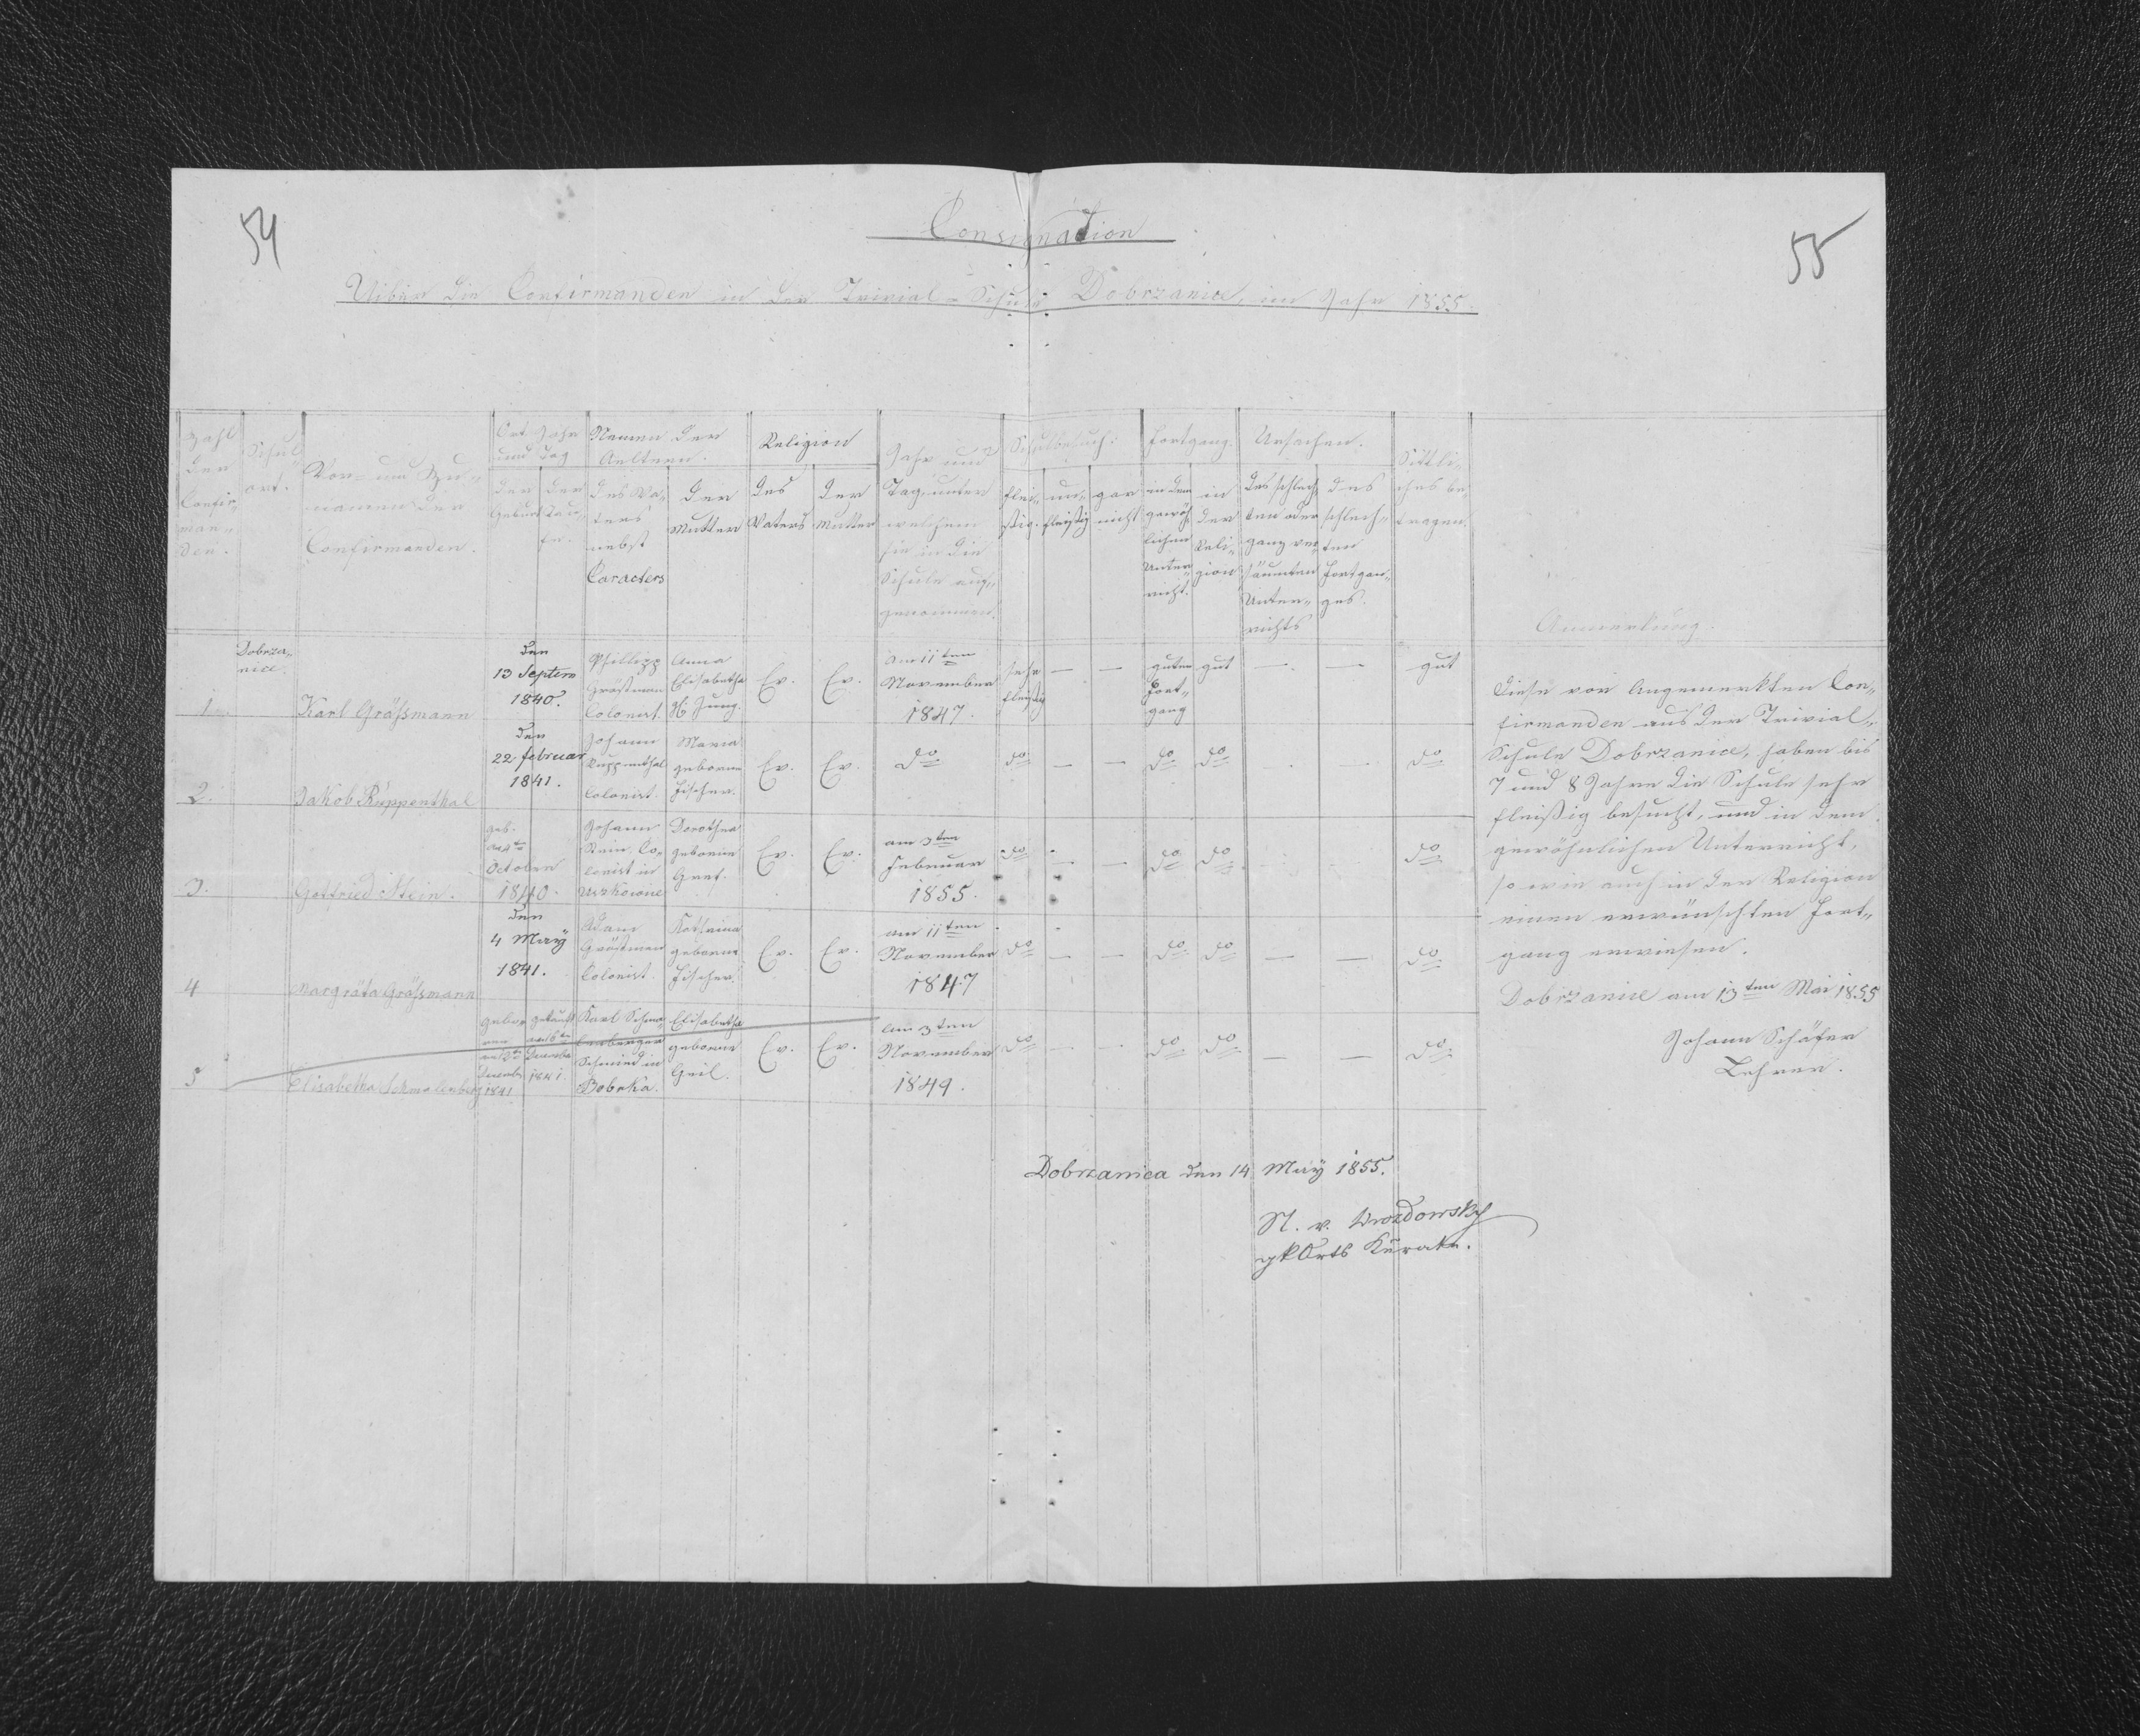 54
55
Consignation
Uiber die Confirmanden in der Trivial-Schule Dobrzanice, im Jahr 1855.
Zahl der Confir- man- den.
Schul- ort.
Vor- und Zu- namen der Confirmanden.
Ort Jahr und Tag
der Geburt
der Tau- fe.
Namen der Aeltern.
des Va- ters nebst Caracters
der Mutter
Religion
des Vaters
der Mutter
Jahr und Tag unter welchem sie in die Schule auf- genommen.
Schulbesuch:
flei- ßig.
un- fleißig
gar nicht
Fortgang.
in dem gewöh- lichen Unter- richt.
in der Reli- gion
Ursachen.
des schlech- ten oder ganz ver- säumten Unter- richts
des schlech- ten Fortgan- ges.
Sittli- ches be- tragen.
Anmerkung.
Dobrza- nice.
1. Karl Gräßmann
den 13 Septem 1840.
Phillipp Gräßmann Colonist.
Anna Elisabetha Jung.
Ev. Ev.
am 11ten November 1847.
sehr fleißig — —
guten Fort- gang
gut — — gut
2. Jakob Ruppenthal
den 22 februar 1841.
Johann Ruppenthal Colonist.
Maria geborne Fischer.
Ev. Ev. do do — — do do - - do
3. Gottfried Stein.
geb. October 1840.
Johann Stein, Co- lonist in
Dorothea geborne Graf.
Ev. Ev.
am 3ten Februar 1855.
do — — do do do
4 Margräta Gräßmann
den 4 Maÿ 1841.
Adam Gräßmann Colonist.
Kathrina geborne Fischer.
Ev. Ev.
am 11ten November 1847
do — — do do — — do
5 Elisabetha Schmalenberg
gebo- ren Decemb 1841
getauft Decembr 1841.
Karl Schma- lenberger Schmied in Bobrka.
Elisabetha geborne Geil.
Ev. Ev.
am 3ten November 1849.
do - - do do — — do
Diese von Angemerkten Con-
firmanden aus der Trivial-
Schule Dobrzanice, haben bis
7 und 8 Jahre die Schule sehr
fleißig besucht, und in dem
gewöhnlichen Unterricht,
so wie auch in der Religion
einen erwünschten Fort-
gang erwiesen.
Dobrzanice am 13ten Mai 1855
Johann Schäfer
Lehrer.
Dobrzanica den 14 Maÿ 1855.
Orts Kurator.